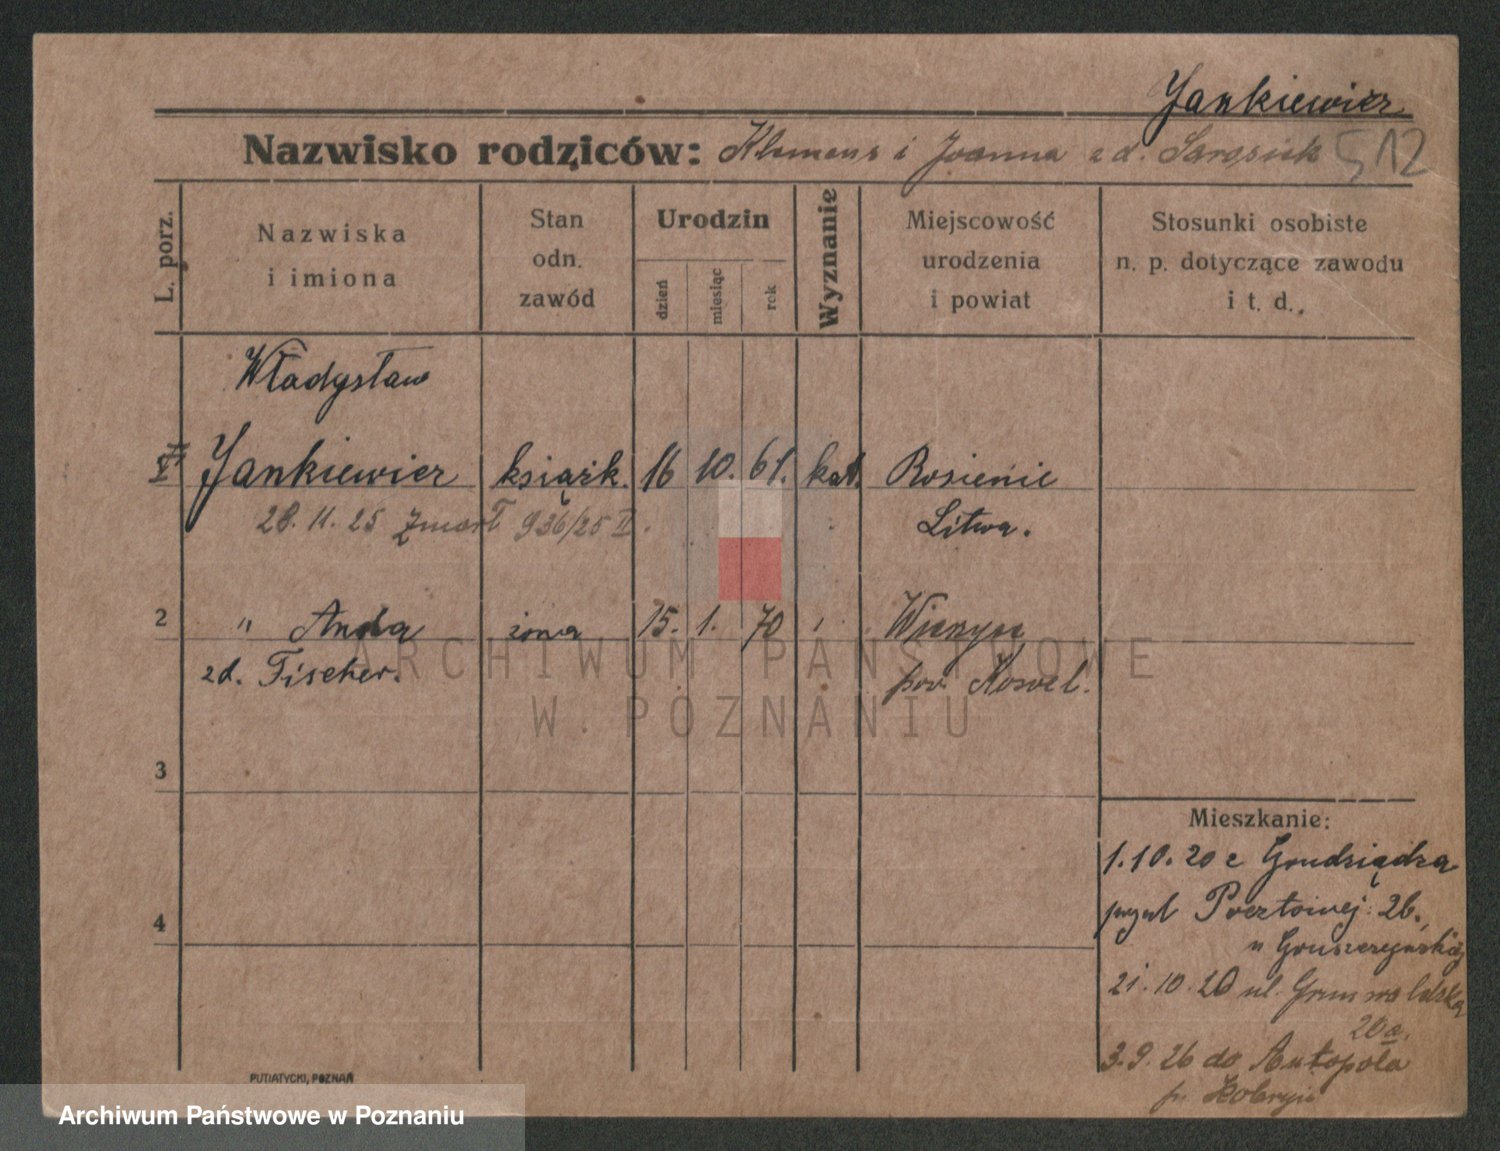 Jankiewicz
Nazwisko rodziców: Klemens i Joanna z d. Sarosiek 512
L. porz.
Nazwiska
i imiona
Stan
odn.
zawód
Urodzin
dzień
miesiąc
rok
Wyznanie
Miejscowość
urodzenia
i powiat
Stosunki osobiste
n. p. dotyczące zawodu
i t. d.
Władysław
Jankiewicz książk. 16 10. 61. kat. Rosienie
28. 11. 25 zmarł 936/25 II. Litwa.
2 " Anna żona 15. 1. 70 "
zd. Fischer. pow. Kowel.
3
4
Mieszkanie:
1.10.20 z Grudziądza
Pocztowej 26.
u Gruszczyńskiej
21.10.20 ul. Grunwaldzka
20a.
3.9.26 do Antopola
p. Kobryń
PUTIATYCKI, POZNAŃ
ARCHIWUM PAŃSTWOWE
W POZNANIU
Archiwum Państwowe w Poznaniu